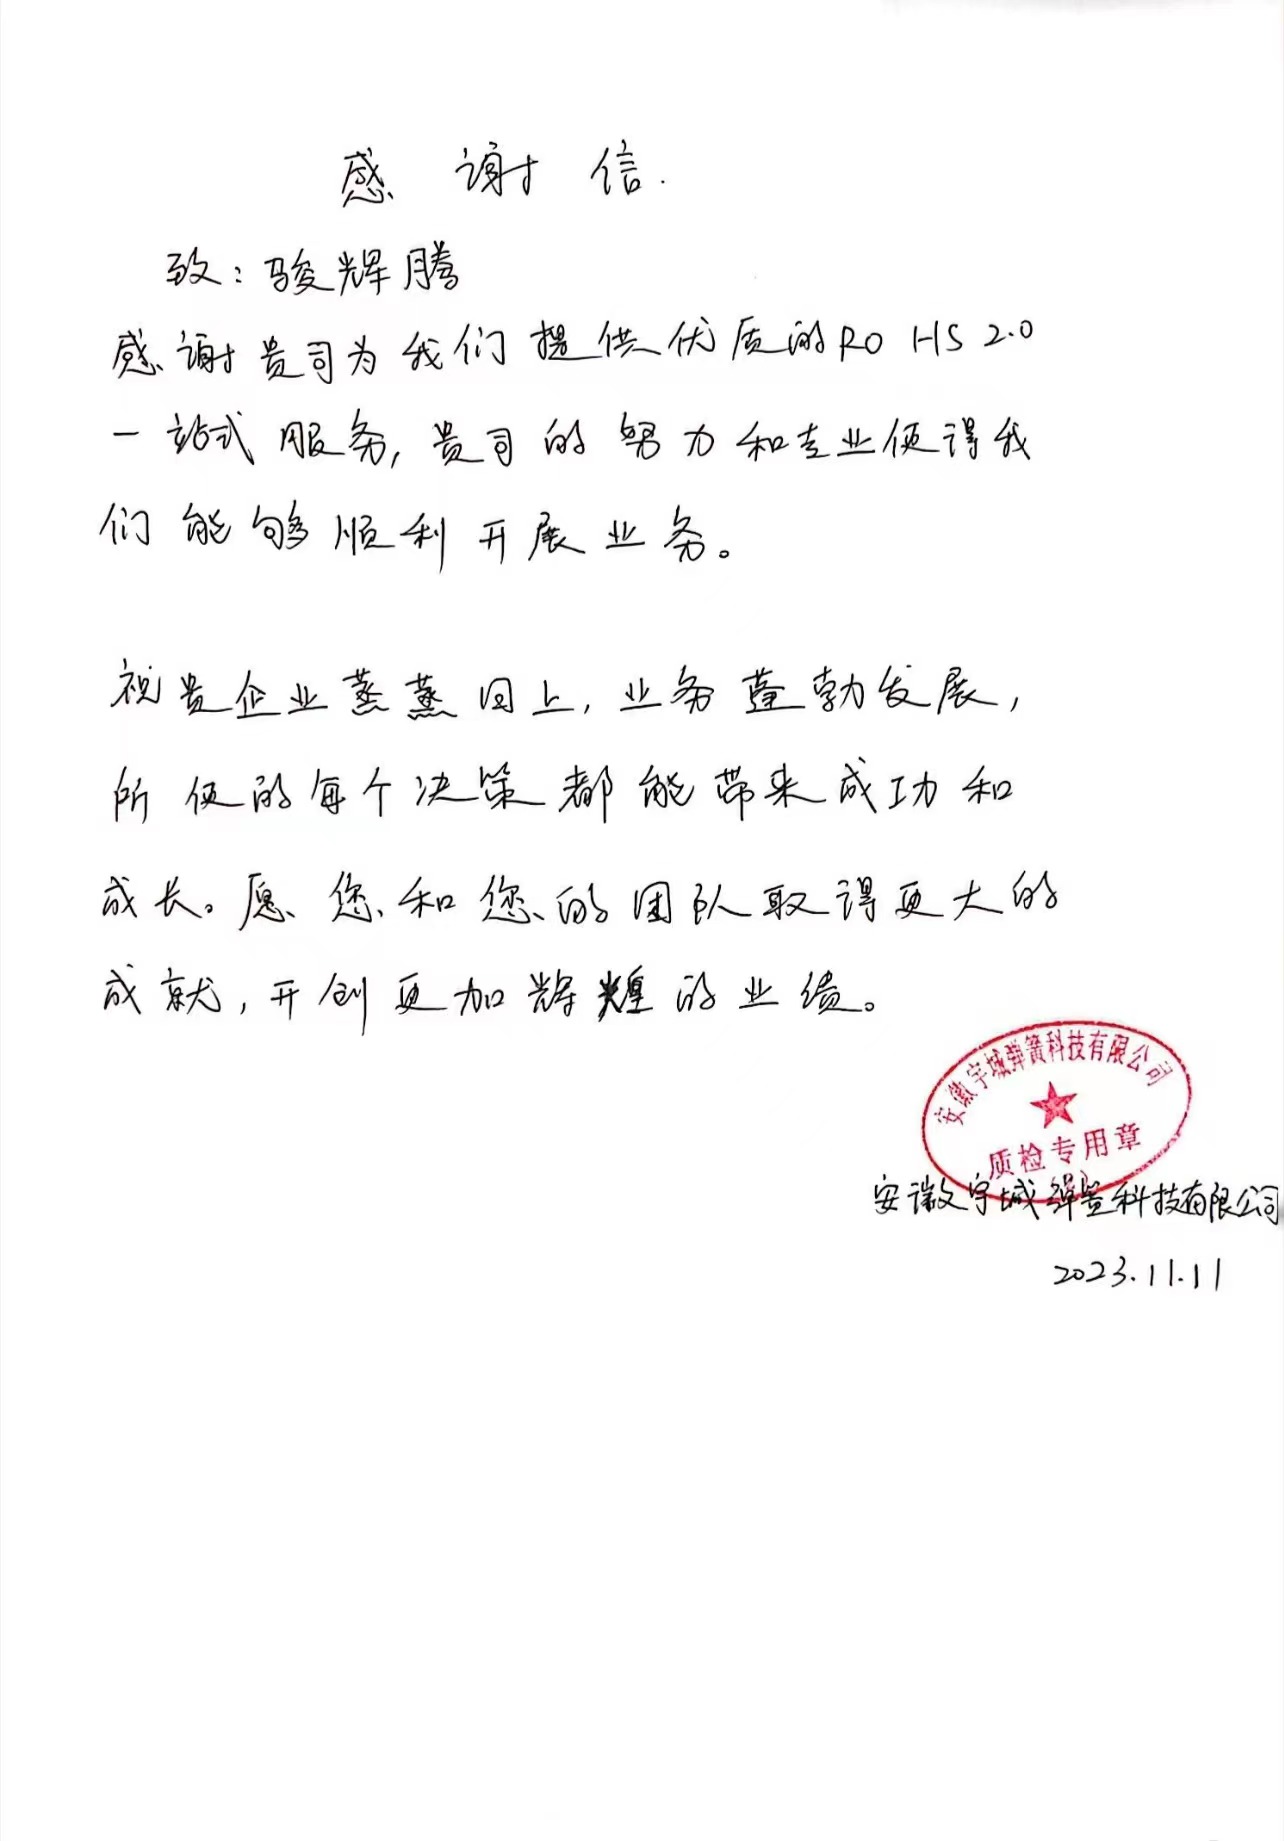 感谢信.
致：骏辉腾
感谢贵司为我们提供优质的RO HS 2.0
一站式服务，贵司的努力和专业使得我
们能够顺利开展业务。
祝贵企业蒸蒸日上，业务蓬勃发展，
所使的每个决策都能带来成功和
成长。愿您和您的团队取得更大的
成就，开创更加辉煌的业绩。
安徽宇城弹簧科技有限公司
质检专用章
安徽宇城弹簧科技有限公司
2023.11.11